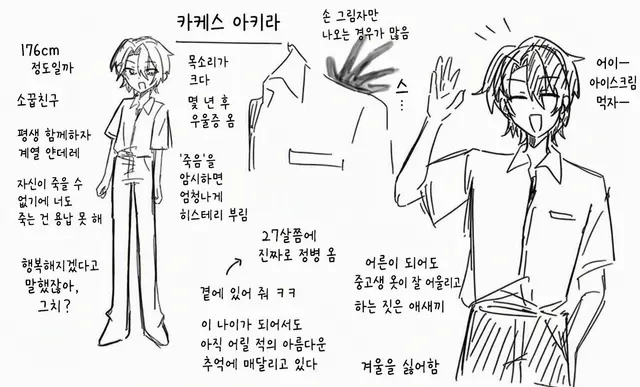 카케스 아키라
176cm
정도일까
소꿉친구
평생 함께하자
계열 얀데레
자신이 죽을 수
없기에 너도
죽는 건 용납 못 해
행복해지겠다고
말했잖아,
그치?
목소리가
크다
몇 년 후
우울증 옴
'죽음'을
암시하면
엄청나게
히스테리 부림
손 그림자만
나오는 경우가 많음
스
⋮
27살쯤에
진짜로 정병 옴
곁에 있어 줘 ㅋㅋ
이 나이가 되어서도
아직 어릴 적의 아름다운
추억에 매달리고 있다
어이ー
아이스크림
먹자ー
어른이 되어도
중고생 옷이 잘 어울리고
하는 짓은 애새끼
겨울을 싫어함